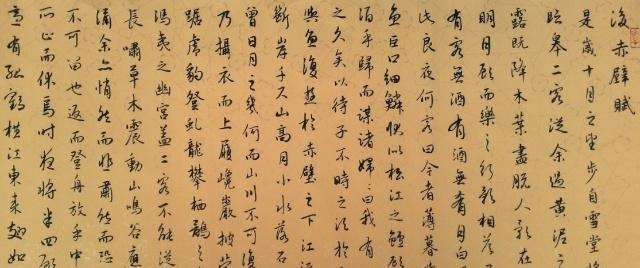 後赤壁賦
是歲十月之望步自雪堂將
臨皋二客從余過黃泥之
露既降木葉盡脫人影在
明月顧而樂之行歌相答
有客無酒有酒無肴月白
此良夜何客曰今者薄暮
魚巨口細鱗狀似松江之鱸顧
酒乎歸而謀諸婦〻曰我有
之久矣以待子不時之須於
與魚復遊於赤壁之下江流
斷岸千尺山高月小水落石
曾日月之幾何而山川不可復
乃攝衣而上履巉巖披蒙
踞虎豹登虬龍攀栖鶻之
馮夷之幽宮蓋二客不能從
長嘯草木震動山鳴谷應
涌余亦悄然而悲肅然而恐
不可留也返而登舟放乎中
所止而休焉時夜將半四顧
適有孤鶴橫江東來翅如